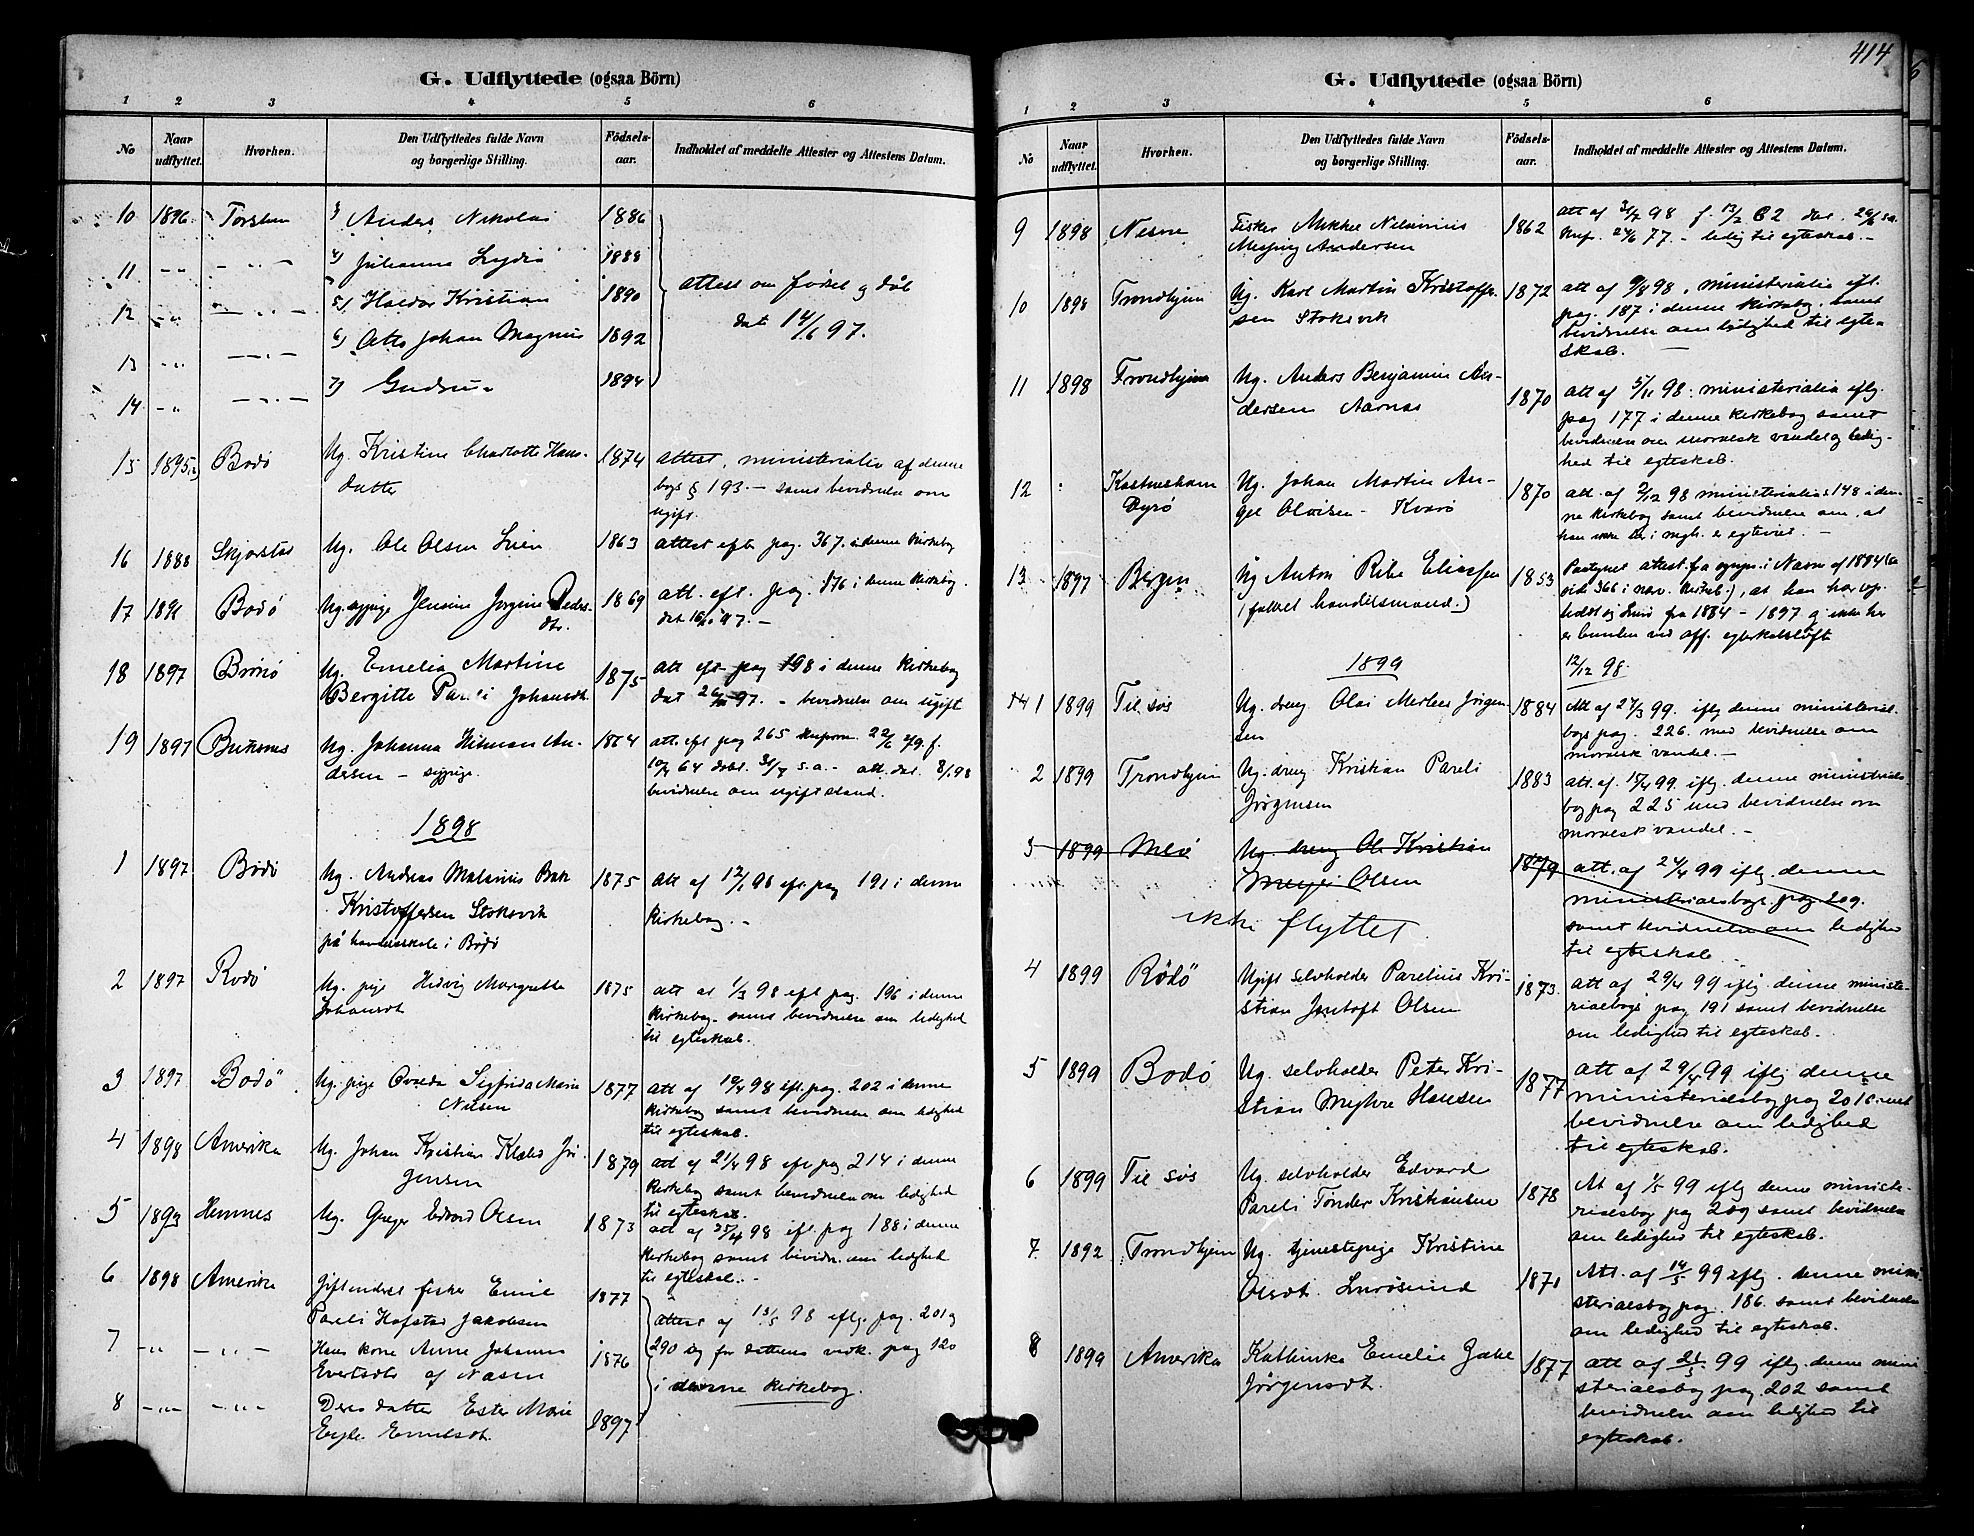 G. Udflyttede (ogsaa Börn)
1 2 3 4 5 6
No
Naar udflyttet.
Hvorhen.
Den Udflyttedes fulde Navn og borgerlige Stilling.
Födsels-aar.
Indholdet af meddelte Attester og Attestens Datum.
10 1896 Torsken 3) Anders Nikolai 1886
11 -"- - " - 4) Julianna Lydia 1888
12 -"- - " - 5) Haldor Kristian 1890
attest om fødsel og dåb
13 -"- - " - 6) Otto Johan Magnus 1892
dat 14/6 97.
14 -"- - " - 7) Gudrun 1894
15 1895 Bodö Ug. Kristine Charlotte Hans- 1874 attest, ministerialiv af denne
datter bogs § 193. - samt bevidnelse om
ugift.
16 1888 Skjerstad Ug. Ole Olsen Lien 1863 attest efter pag. 367. i denne kirkebog
17 Bodö Ug. sypige Jensine Jørgine Peders- 1869 att. eft. pag. 176 i denne kirkebog
dtr. 97. -
18 1897 Brönö Ug. Emelia Martine 1875 att eft pag 198 i denne kirkebog
Bergitte Pareli Johansdt. dat 97. - bevidnelse om ugift
19 1897 Buksnes Ug. Johanna Hilman An- 1864 att. eft pag 265
dersen - sypige. 64 døbt s.a. - att. dat. 8/1 98
bevidnelse om ugift stand.
1898
1 1897 Bodö Ug. Andreas Malanius Bak 1875 att af 12/1 98 eft. pag 191 i denne
Kristoffersen Stoksvik kirkebog. -
på handelsskole i Bodö
2 1897 Rodö Ug. pige Hedvig Margrethe 1875 att af 1/3 98 eft pag. 196 i denne
Johansdt kirkebog - samt bevidnelse om ledighed
til egteskab.
3 1897 Bodö Ug. pige Ovedia Sigfrida Marie 1877 att af 19/4 98 eft. pag. 202 i denne
Nilsen kirkebog samt bevidnelse om ledighed
til egteskab.
4 1898 Amerika Ug. Johan Kristian Klæbo Jör- 1879 att af 21/4 98 eft pag 214 i denne
gensen kirkebog samt bevidnelse om ledighed
til egteskab.
5 1893 Hemnes Ug. Greger Edvard Olsen 1873 att af 25/4 98 eft. pag 188 i denne
kirkebog samt bevidn. om ledighed
til egteskab. -
6 1898 Amerika Giftendest fisker Emil 1877
Pareli Hofstad Jakobsen attest af 13/5 98 eftg. pag. 201 og
7 -"- - " - Hans kone Anne Johanna 1876 290 og for datteren vedk. pag 120
Evertsdtr af Næsen i denne kirkebog.
8 -"- - " - Deres datter Ester Marie 1897
Emilsdt.
414
G. Udflyttede (ogsaa Börn)
1 2 3 4 5 6
No
Naar udflyttet.
Hvorhen.
Den Udflyttedes fulde Navn og borgerlige Stilling.
Födsels-aar.
Indholdet af meddelte Attester og Attestens Datum.
9 1898 Nesne Fisker Mikkel 1862 att af 98 f. 62 døbt s.a.
Andersen 77. - ledig til egteskab. -
10 1898 Trondhjem Ug. Karl Martin Kristoffer- 1872 att af 9/8 98, ministerialia eft.
sen Stoksvik pag. 187 i denne kirkebog, samt
bevidnelse om ledighed til egte-
skab. -
11 1898 Trondhjem Ug. Anders Benjamin An- 1870 att af 5/11 98. ministerialia eftg.
dersen Aarnæs pag 177 i denne kirkebog samt
bevidnelse om moralsk vandel og ledig-
hed til egteskab.
12 Ug. Johan Martin An- 1870 att. af 2/12 98 ministerialia s 148 i den-
Dyrö ton Olaisen - Kvarö ne kirkebog samt bevidnelse om, at
han ikke her i mgh. er egteviet. -
13 1897 Bergen Ug Anton Ribe Eliassen 1853
(fallit handelsmand.) at han har op-
holdt sig fra 1884 - 1897 og ikke her
er bunden ved off. egteskabsløft
1899 12/12 98.
1 1899 Til sös Ug. dreng Olai Jörgen 1884 Att af 27/3 99. iflg denne ministerial-
sen bogs pag. 226. med bevidnelse om
moralsk vandel. -
2 1899 Trondhjem Ug. dreng Kristian Pareli 1883 att. af. 15/4 99. iflg. denne ministerial-
Jörgensen bog pag 225 med bevidnelse om
moralsk vandel. -
3 1899 Ug. dreng Ole Kristian 1879 att. af 24/4 99 iflg. denne
Olsen ministerialsbogs. pag 209.
ikke flyttet. samt bevidnelse om ledighed
til egteskab.
4 1899 Rödö Ugift selvholder Parelius Kri- 1873 att af 29/4 99 iflg. denne ministe-
stian Jentoft Olsen rialsbogs pag 191 samt bevidnelse
om ledighed til egteskab.
5 1899 Bodö Ug. selvholder Peter Kri- 1877 att af 29/4 99 iflg denne
stian Hansen ministerialsbog pag 201 samt
bevidnelse om ledighed
til egteskab.
6 1899 Til sös Ug. selvholder Edvard 1878 At af 1/5 99 iflg denne ministe-
Pareli Tönder Kristiansen rialsbog pag 209 samt bevidnelse
om ledighed til egteskab.
7 1892 Trondhjem Ug. tjenestepige Kristine 1871 Att. af 14/5 99 iflg. denne mini
Olsdt. Lurösund sterialsbog pag. 186. samt bevidnelse
om ledighed til egteskab.
8 1899 Amerika Kathinka Emelie Zahl 1877 att af 21/5 99 iflg. denne mini
Jörgensdt. sterialsbog pag. 202 samt
bevidnelse om ledighed til
egteskab.